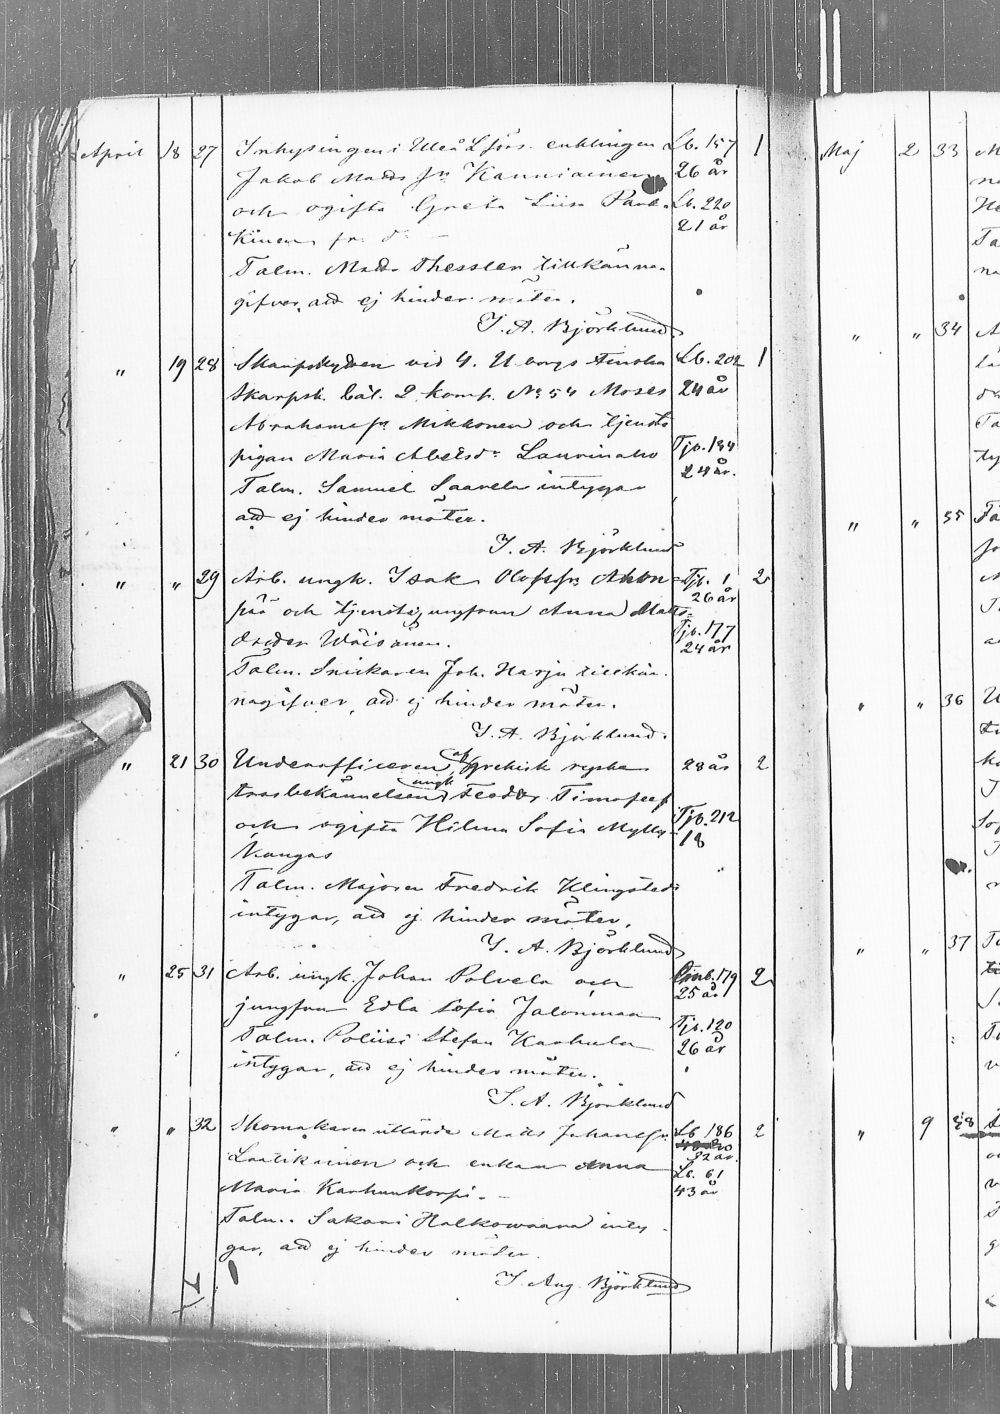 April 18 27 Inhysingen i Uleå L förs. enklingen Lb. 157 1
Jakob Matts fr Kanniainen 26 år
och ogifta Greta Liisa Park- Lb. 220
kinen fr. d:o 21 år
Talm. Matts Thessler tillkänna-
gifver, att ej hinder möter.
J. A. Björklund
" 19 28 Skarpskytten vid 4. U.borgs Finska Lb. 202 1
Skarpsk. bat. 2 komp. No 54 Moses 24 år
Abrahams fr Mikkonen och tjensts
pigan Maria Abelsdr Laurinaho Tjb. 134
24 år.
Talm. Samuel Saarela intygar
att ej hinder möter.
J. A. Björklund
" " 29 Arb. ungk. Isak Olofsfr Ahon- Tjb. 1 2
26 år
pää och tjenstejungfrun Anna Matts-
dotter Wäisänen. Tjb. 177
24 år
Talm. Snickaren Joh. Harju tillkän-
nagifver, att ej hinder möter.
J. A. Björklund.
" 21 30 Underofficeren af grekisk ryska 28 år 2
trosbekännelsen ungk Feodor Timofeef
och ogifta Hilma Sofia Mylly- Tjb. 212
18
kangas
Talm. Majoren Fredrik Klingstedt
intygar, att ej hinder möter.
J. A. Björklund
" 25 31 Arb. ungk. Johan Polvela och 179 2
25 år
jungfrun Edla Sofia Jalonmaa
Tjb. 120
Talm. Poliisi Stefan Karhula 26 år
intygar, att ej hinder möter.
J. A. Björklund
" " 32 Skomakaren utlärde Matts Johansfr Lb 186 2
32 år.
Laatikainen och enkan Anna Lb. 61
Maria Karhunkorpi. 43 år
Talm. Sakari Halkowaara inty-
gar, att ej hinder möter.
J. Aug. Björklund
Maj 2 33
" " 34
" " 35
" " 36
" " 37
" 9 38